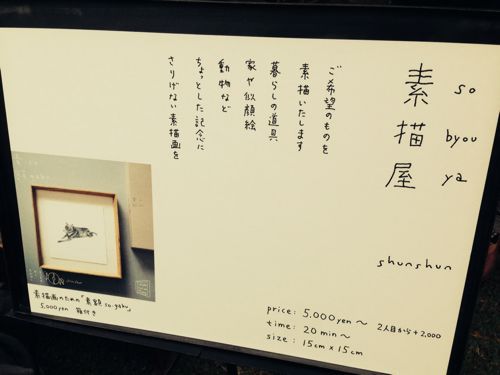 素描屋
so
byou
ya
shunshun
ご希望のものを
素描いたします
暮らしの道具
家や似顔絵
動物など
ちょっとした記念に
さりげない素描画を
price: 5.000yen〜 2人目から+2,000
time: 20min〜
size: 15cm×15cm
素描画のための「素額 so-gaku」
5,000yen 箱付き